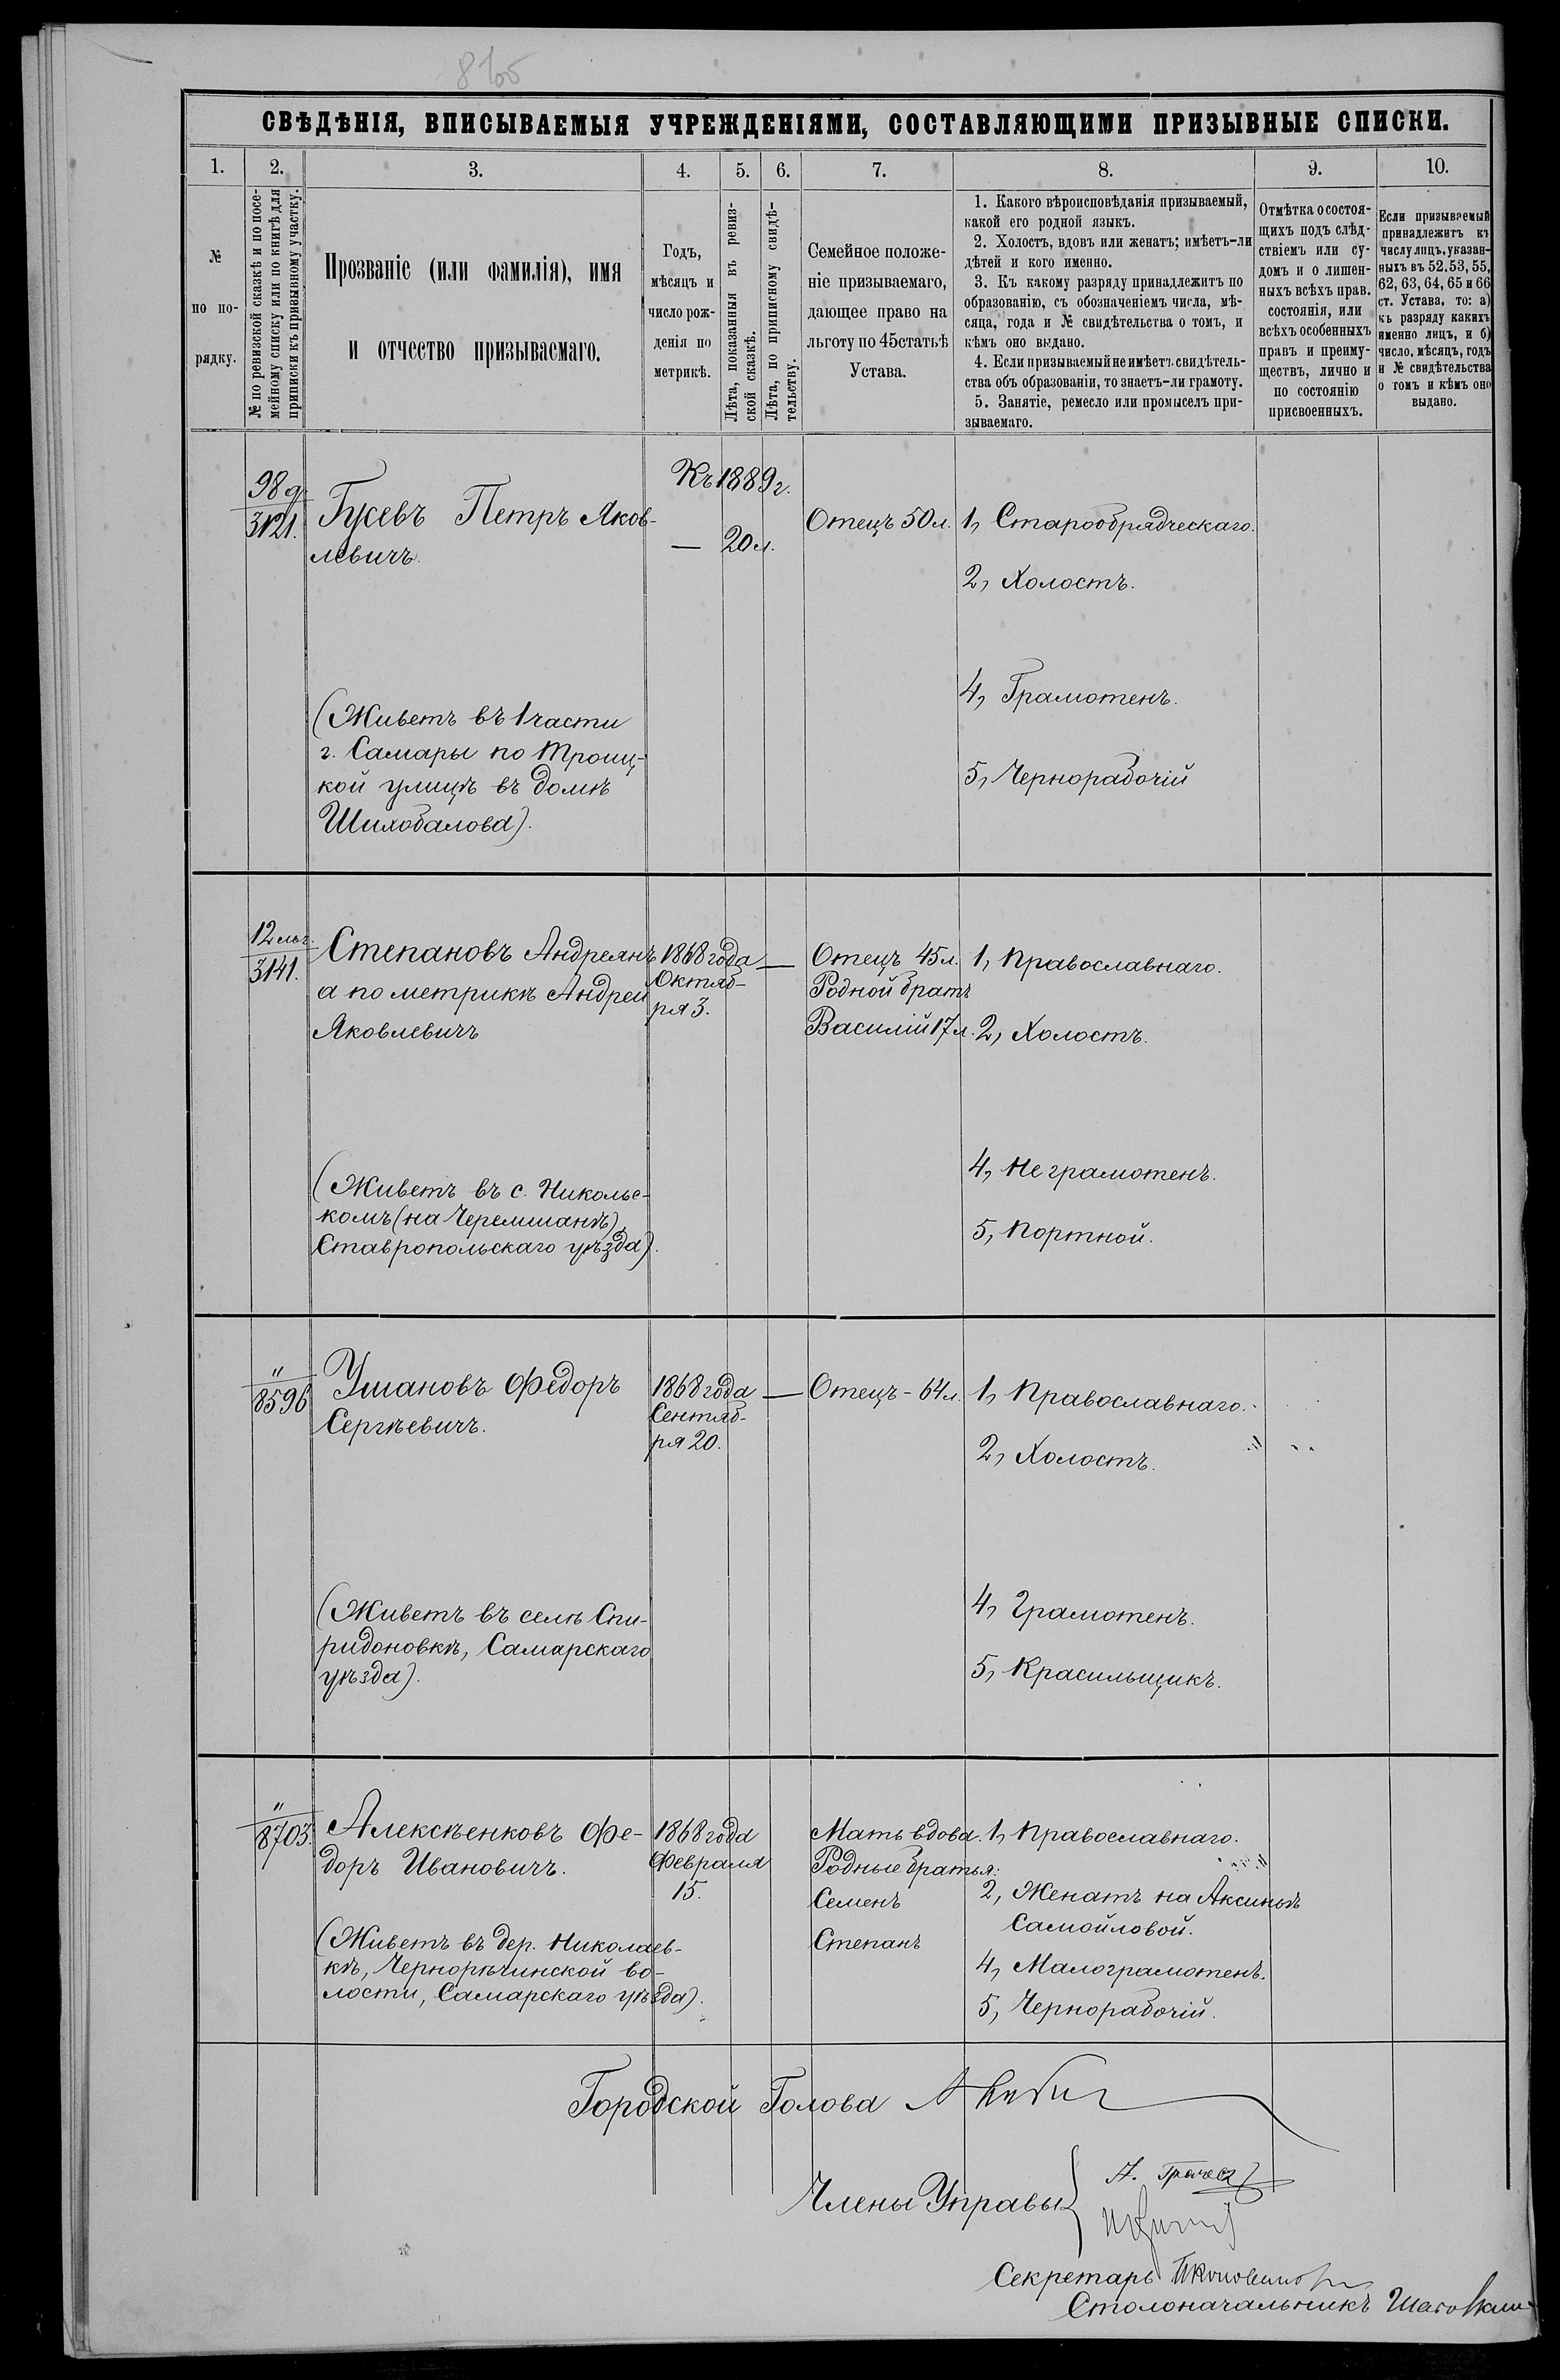 СВѢДѢНІЯ, ВПИСЫВАЕМЫЯ УЧРЕЖДЕНІЯМИ, СОСТАВЛЯЮЩИМИ ПРИЗЫВНЫЕ СПИСКИ.
1.
2.
3.
4.
5.
6.
7.
8.
9.
10.
№
по по-
рядку.
№ по ревизской сказкѣ и по посе-
мейному списку или по книгѣ для
приписки къ призывному участку.
Прозваніе (или фамилія), имя
и отчество призываемаго.
Годъ,
мѣсяцъ и
число рож-
денія по
метрикѣ.
Лѣта, показанныя въ ревиз-
ской сказкѣ.
Лѣта, по приписному свидѣ-
тельству.
Семейное положе-
ніе призываемаго,
дающее право на
льготу по 45 статьѣ
Устава.
1. Какого вѣроисповѣданія призываемый,
какой его родной языкъ.
2. Холостъ, вдовъ или женатъ; имѣетъ-ли
дѣтей и кого именно.
3. Къ какому разряду принадлежитъ по
образованію, съ обозначеніемъ числа, мѣ-
сяца, года и № свидѣтельства о томъ, и
кѣмъ оно выдано.
4. Если призываемый не имѣетъ свидѣтель-
ства объ образованіи, то знаетъ-ли грамоту.
5. Занятіе, ремесло или промыселъ при-
зываемаго.
Отмѣтка о состоя-
щихъ подъ слѣд-
ствіемъ или су-
домъ и о лишен-
ныхъ всѣхъ прав.
состоянія, или
всѣхъ особенныхъ
правъ и преиму-
ществъ, лично и
по состоянію
присвоенныхъ.
Если призываемый
принадлежитъ къ
числу лицъ, указан-
ныхъ въ 52, 53, 55,
62, 63, 64, 65 и 66
ст. Устава, то: а)
къ разряду какихъ
именно лицъ, и б)
число, мѣсяцъ, годъ
и № свидѣтельства
о томъ и кѣмъ оно
выдано.
3121.
Гусевъ Петръ Яков-
левичъ.
Къ 1889 г.
— 20 л.
Отецъ 50 л.
1, Старообрядческаго.
2, Холостъ.
4, Грамотенъ.
5, Чернорабочій
(Живетъ въ 1 части
г. Самары по Троиц-
кой улицѣ въ домѣ
Шихобалова).
3141.
Степановъ Андреянъ
а по метрикѣ Андрей
Яковлевичъ
1868 года
Октяб-
ря 3.
—
Отецъ 45 л.
Родной братъ
Василій 17 л.
1, Православнаго.
2, Холостъ.
4, Не грамотенъ.
5, Портной.
(Живетъ въ с. Никольс-
комъ (на Черемшанѣ),
Ставропольскаго уѣзда).
"
8596
Ушановъ Федоръ
Сергѣевичъ.
1868 года
Сентяб-
ря 20.
—
Отецъ - 64 л.
1, Православнаго.
2, Холостъ.
4, Грамотенъ.
5, Красильщикъ.
(Живетъ въ селѣ Спи-
ридоновкѣ, Самарскаго
уѣзда).
"
8703.
Алексѣенковъ Фе-
доръ Ивановичъ.
1868 года
Февраля
15.
Мать вдова.
Родные братья:
Семенъ
Степанъ
1, Православнаго.
2, Женатъ на Аксиньѣ
Самойловой.
4, Малограмотенъ.
5, Чернорабочій.
(Живетъ въ дер. Николаев-
кѣ, Чернорѣчинской во-
лости, Самарскаго уѣзда).
Городской Голова
Члены Управы
Секретарь
Столоначальникъ